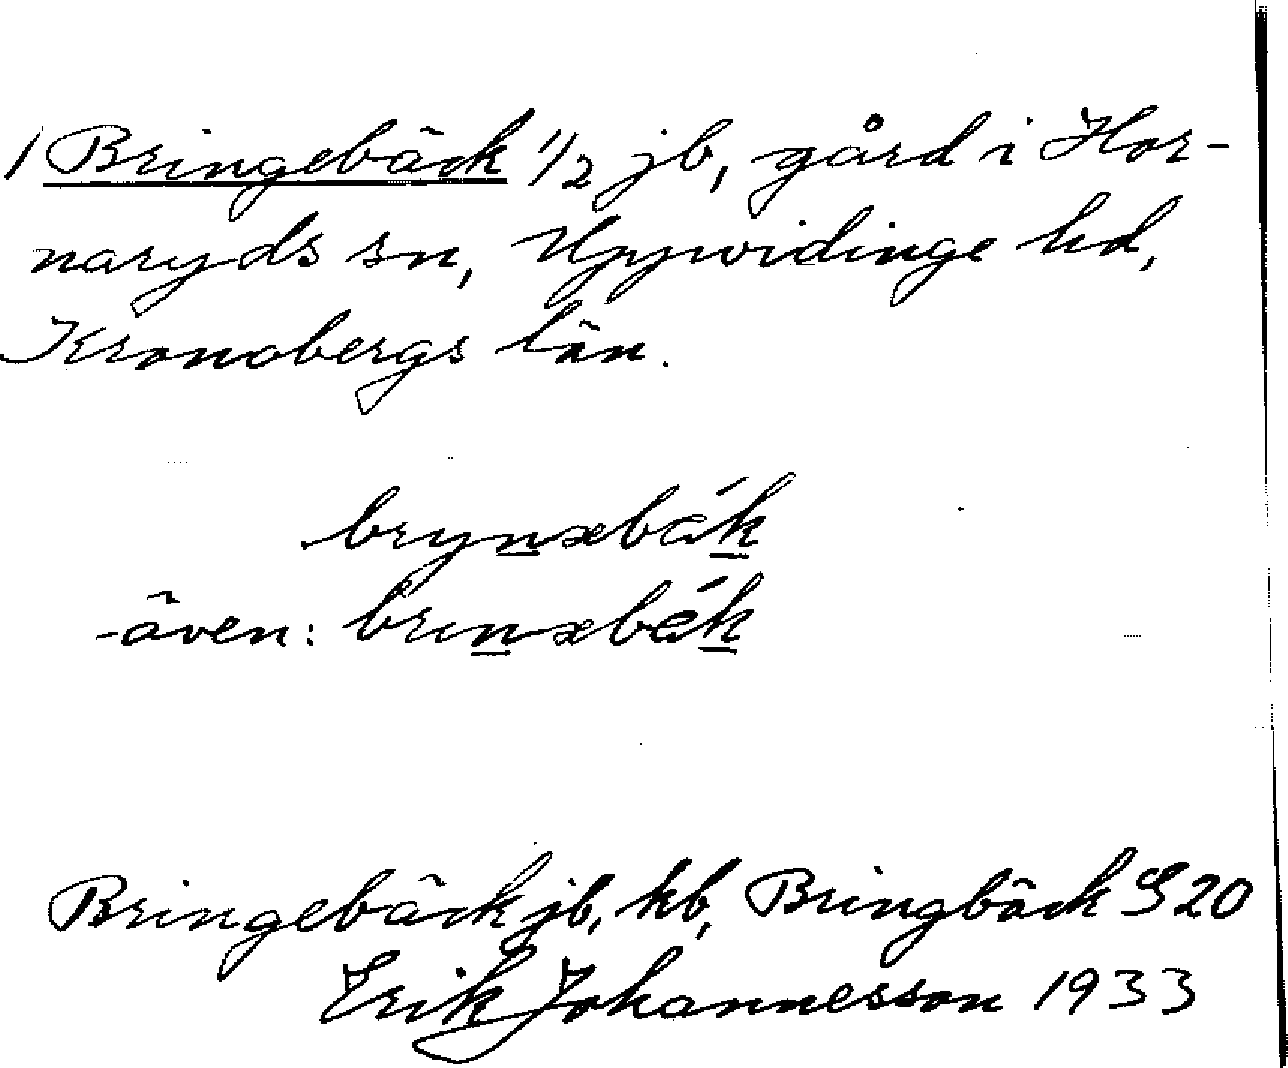 1 Bringebäck 1/2 jb, gård i Hor-
naryds sn, Uppvidinge hd,
Kronobergs län.
brynxbäk
även: brinxbäk
Bringebäck jb, kb, Bringbäck S 20
Erik Johannesson 1933